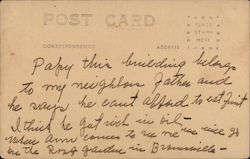 POST CARD
PLACE
STAMP
HERE
CORRESPONDENCE ADDRESS
Papy this building belongs
to my neighbors father and
he says he cant afford to eat fruit
I think he got rich in oil—
when Ann comes to see me we
in the Rose garden in Brownsville—